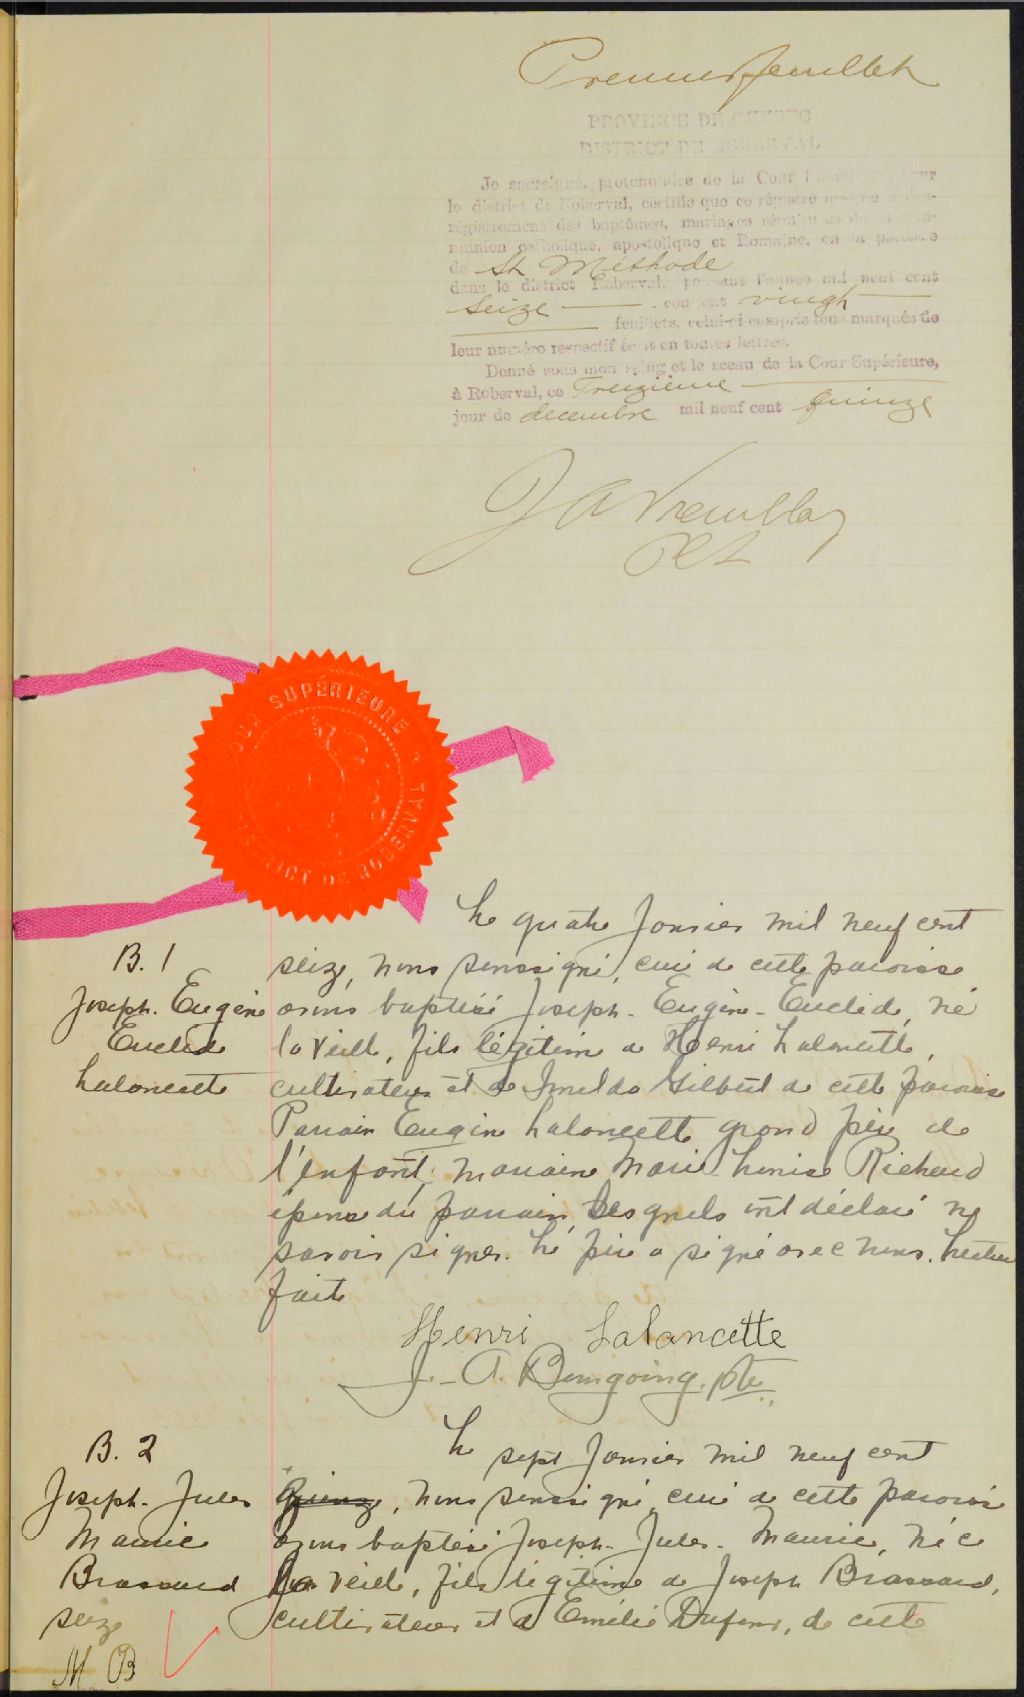 Premier feuillet
PROVINCE DE QUEBEC
DISTRICT DE ROBERVAL
Je soussigné, protonotaire de la Cour Supérieure pour
le district de Roberval, certifie que ce régistre
régistrement des baptêmes, mariages
munion catholique, apostolique et Romaine, en la paroisse
de St Méthode
dans le district Roberval, pendant l'année mil neuf cent
seize contient vingt
feuillets, celui-ci compris tous marqués de
leur numéro respectif écrit en toutes lettres.
Donné sous mon seing et le sceau de la Cour Supérieure,
à Roberval, ce Treizième
jour de décembre mil neuf cent quinze
J A Tremblay
COUR SUPÉRIEURE
DISTRICT DE ROBERVAL
Le quatre Janvier mil neuf cent
B. 1
seize, nous soussigné, curé de cette paroisse
Joseph. Eugène
avons baptisé Joseph - Eugène - Euclide, né
Euclide
la veille, fils légitime de Henri Lalancette,
Lalancette
cultivateur et de Imelda Gilbert de cette paroisse
Parrain Eugène Lalancette grand père de
l'enfant, marraine Marie Louise Richard
épouse du parrain, lesquels ont déclaré ne
savoir signer. Le père a signé avec nous. Lecture
faite
Henri Lalancette
J. - A. Bourgoing, ptre.
B. 2
Le sept Janvier mil neuf cent
Joseph - Jules
quinze, nous soussigné, curé de cette paroisse
Maurice
avons baptisé Joseph - Jules - Maurice, né
Brassard
la veille, fils légitime de Joseph Brassard,
seize
cultivateur et de Emélie Dufour, de cette
M B